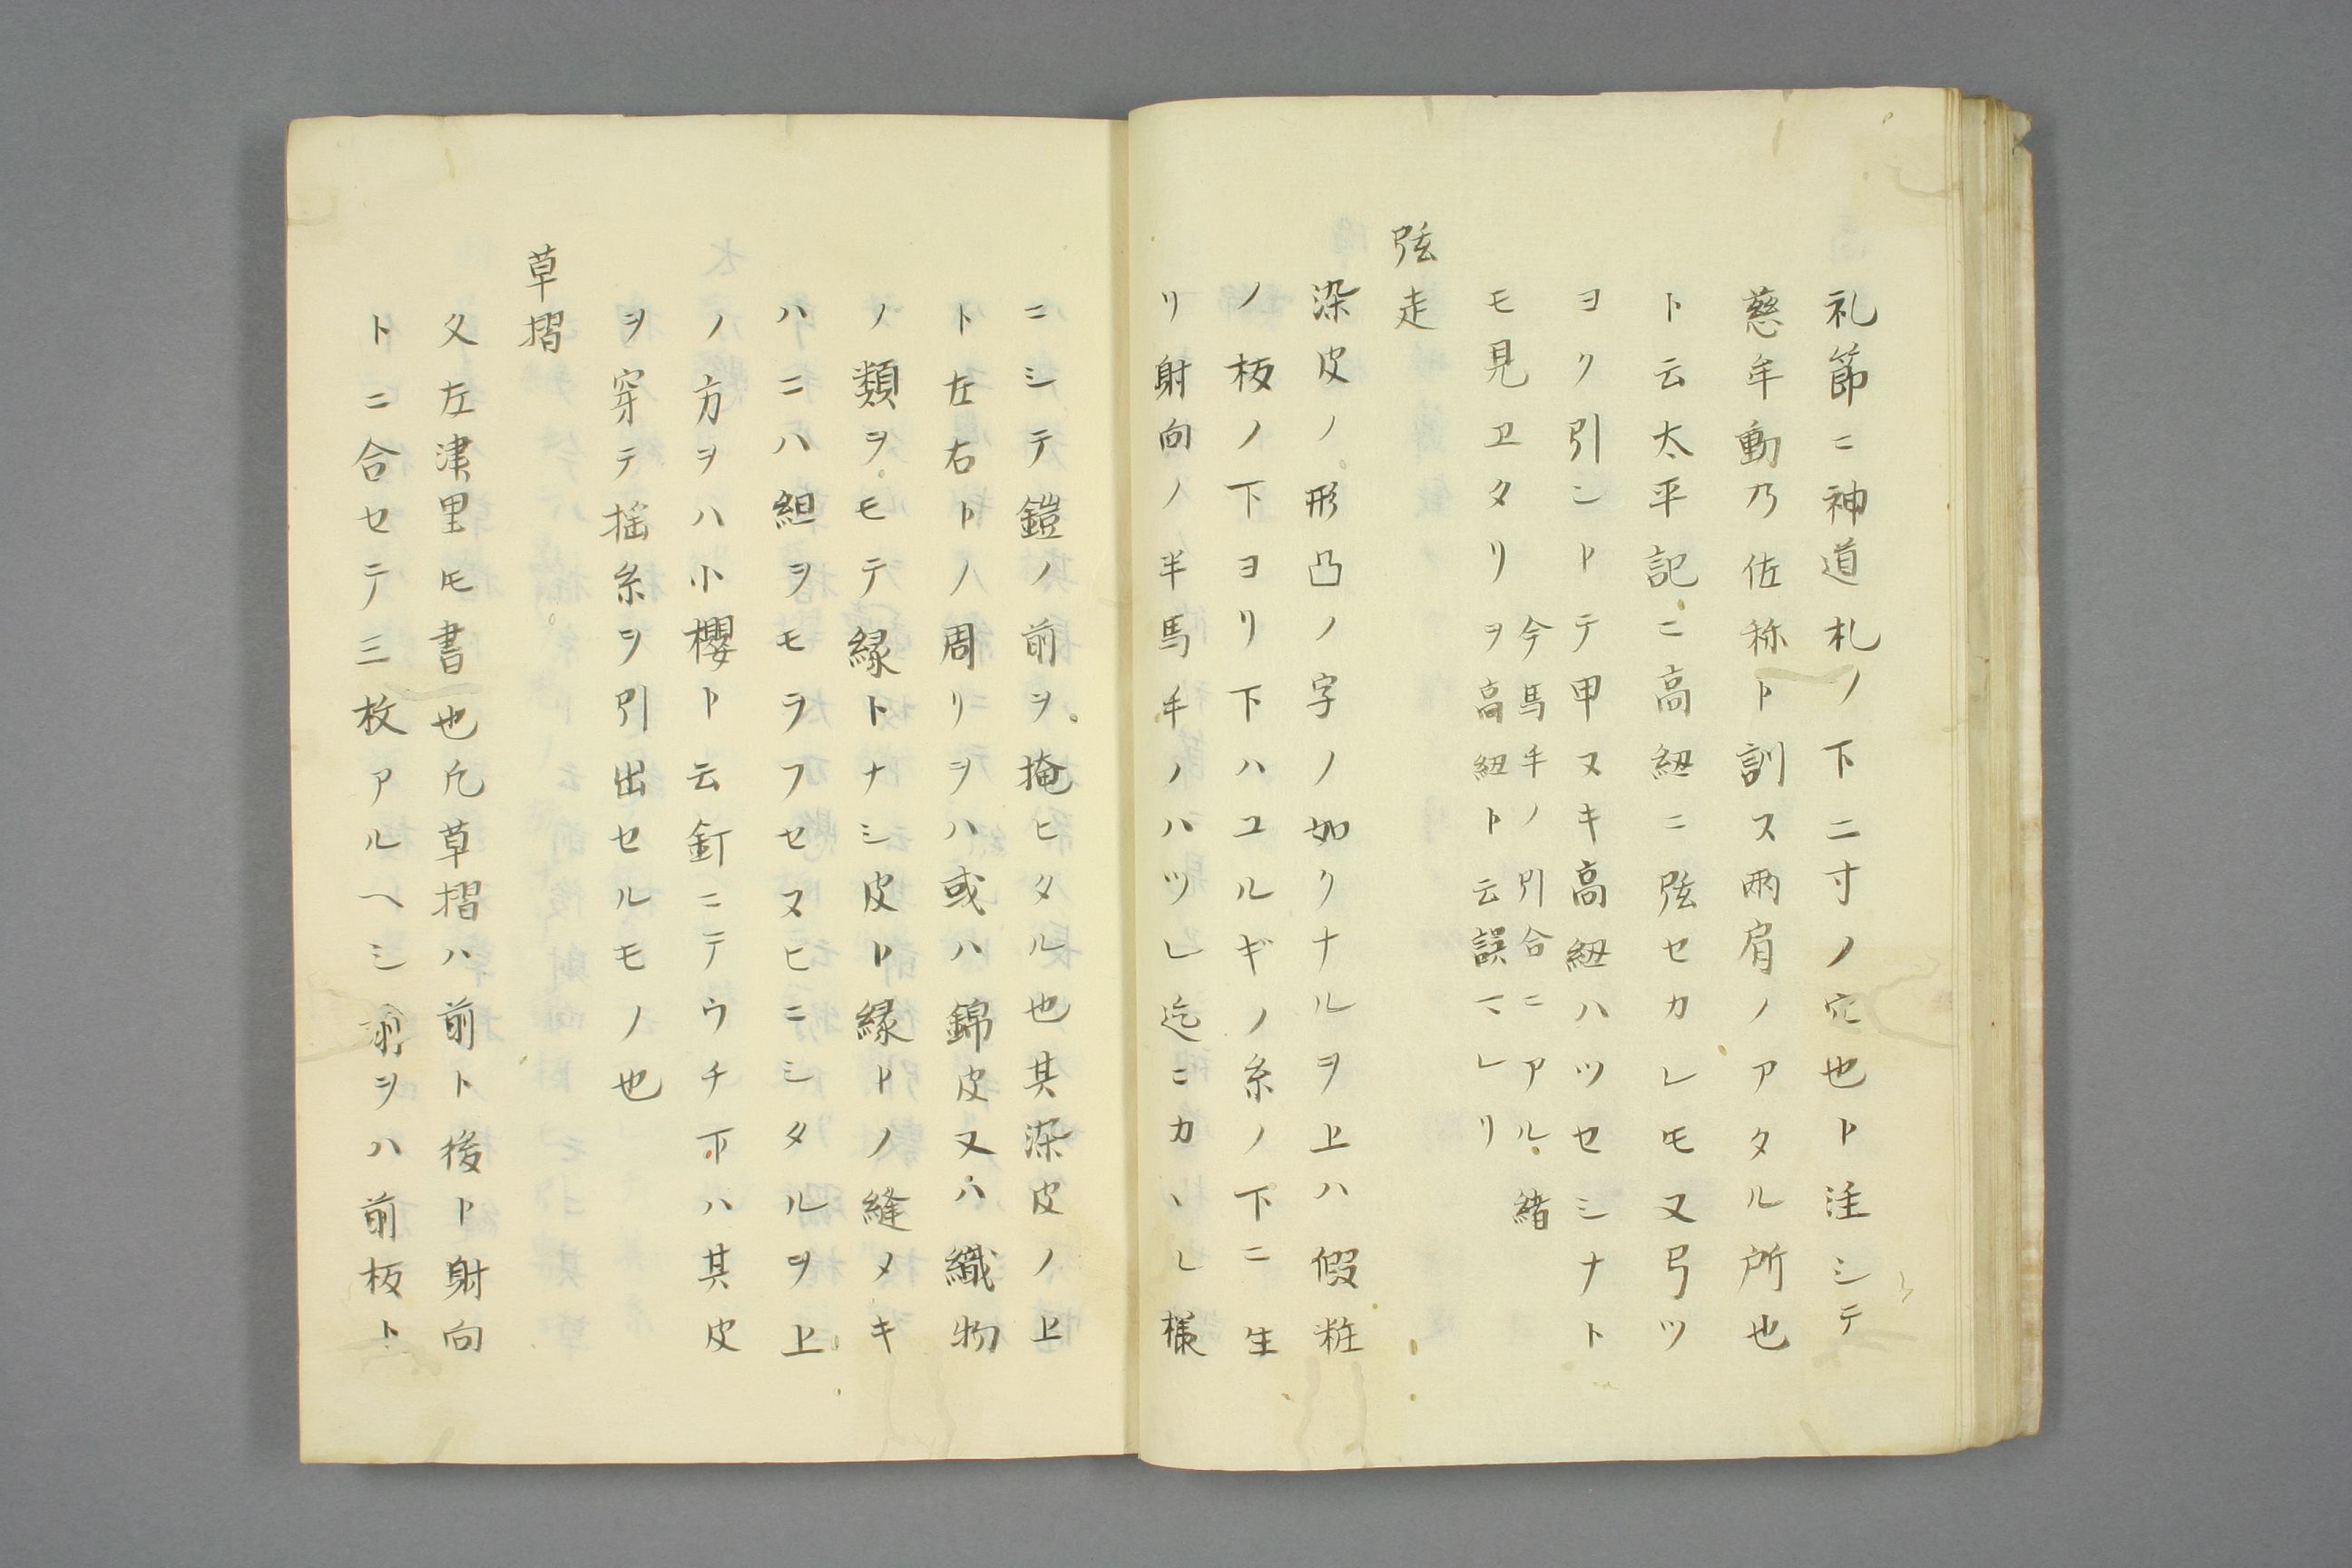 礼節ニ神道札ノ下二寸ノ穴也ト注シテ
慈牟動乃佐称ト訓ス兩肩ノアタル所也
ト云太平記ニ高紐ニ弦セカレモ又弓ツ
ヨク引ントテ甲ヌキ高紐ハツセシナト
モ見ヱタリ
今馬手ノ引合ニアル緒
ヲ高紐ト云誤マレリ
弦走
染皮ノ形凸ノ字ノ如クナルヲ上ハ假粧
ノ板ノ下ヨリ下ハユルギノ糸ノ下ニ生
リ射向ノ半馬手ノハツレ迄ニカヽレ様
ニシテ鎧ノ前ヲ掩ヒタル也其染皮ノ上
ト左右トノ周リヲハ或ハ錦皮又ハ織物
ノ類ヲモテ縁トナシ皮ト縁トノ縫メキ
ハニハ組ヲモラフセヌヒニシタルヲ上
ノ方ヲハ小櫻ト云釘ニテウチ下ハ其皮
ヲ穿テ揺糸ヲ引出セルモノ也
草摺
久左津里モ書也凡草摺ハ前ト後ト射向
トニ合セテ三枚アルヘシ前ヲハ前板ト